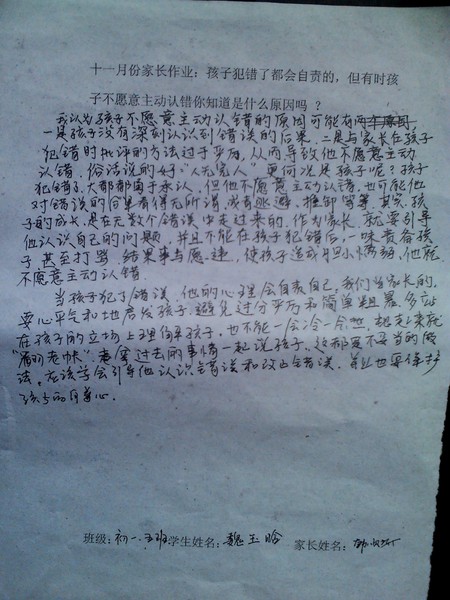 十一月份家长作业：孩子犯错了都会自责的，但有时孩
子不愿意主动认错你知道是什么原因吗？
我认为孩子不愿意主动认错的原因可能有两
一是孩子没有深刻认识到错误的后果，二是与家长在孩子
犯错时批评的方法过于严厉，从而导致他不愿意主动
认错。俗话说的好"人无完人"，更何况是孩子呢？孩子
犯错了，大都都于承认，但他不愿意主动认错，也可能他
对错误的后果看得无所谓，或有逃避、推卸等等。其实，孩
子的成长，是在无数个错误中走过来的。作为家长，就要引导
他认识自己的问题，并且不能在孩子犯错后，一味责备孩
子，甚至打骂，结果事与愿违，使孩子造成情绪，他能
不愿意主动认错。
当孩子犯了错误，他的心理会自责自己，我们当家长的，
要心平气和地启发孩子，避免过分严厉和简单粗暴，多站
在孩子的立场上理解孩子，也不能一会冷一会热，想起来就
"翻老帐"，着重过去的事情一起说孩子，这都是不妥当的做
法。应该学会引导他认识错误和改正错误，并且也要保护
孩子的自尊心。
班级：初一.五班学生姓名：魏玉晗 家长姓名：